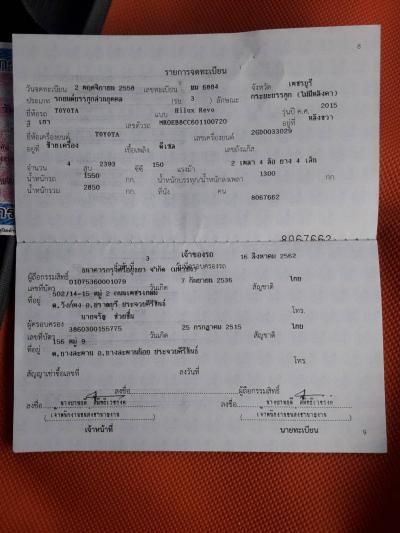 8
รายการจดทะเบียน
วันจดทะเบียน 2 พฤศจิกายน 2558 เลขทะเบียน ผม 6084 จังหวัด เพชรบุรี
ประเภท รถยนต์บรรทุกส่วนบุคคล (รย 3) ลักษณะ กระบะบรรทุก (ไม่มีหลังคา)
ยี่ห้อรถ TOYOTA แบบ Hilux Revo รุ่นปี ค.ศ. 2015
สี เทา เลขตัวรถ อยู่ที่ หลังขวา
ยี่ห้อเครื่องยนต์ TOYOTA เลขเครื่องยนต์ 2GD0033029
อยู่ที่ ซ้ายเครื่อง เชื้อเพลิง ดีเซล เลขถังแก๊ส
จำนวน 4 สูบ 2393 ซีซี 150 แรงม้า 2 เพลา 4 ล้อ ยาง 4 เส้น
น้ำหนักรถ 1550 กก. น้ำหนักบรรทุก/น้ำหนักลงเพลา 1300 กก.
น้ำหนักรวม 2850 กก. ที่นั่ง คน
8067662
8067662
เจ้าของรถ
3 16 สิงหาคม 2562
ผู้ถือกรรมสิทธิ์ ธนาคารกรุงศรีอยุธยา จำกัด (มหาชน)
เลขที่บัตร 0107536001079 วันเกิด 7 กันยายน 2536 สัญชาติ ไทย
ที่อยู่ 502/14-15 หมู่ 2 ถนนเพชรเกษม
โทร.
ผู้ครอบครอง
เลขที่บัตร 3860300155775 วันเกิด 25 กรกฎาคม 2515 สัญชาติ ไทย
ที่อยู่ 156 หมู่ 9
ต.บางสะพาน อ.บางสะพานน้อย ประจวบคีรีขันธ์ โทร.
สัญญาเช่าซื้อเลขที่ ลงวันที่
ลงชื่อ ผู้ถือกรรมสิทธิ์
ลงชื่อ ลงชื่อ
เจ้าหน้าที่ นายทะเบียน
9